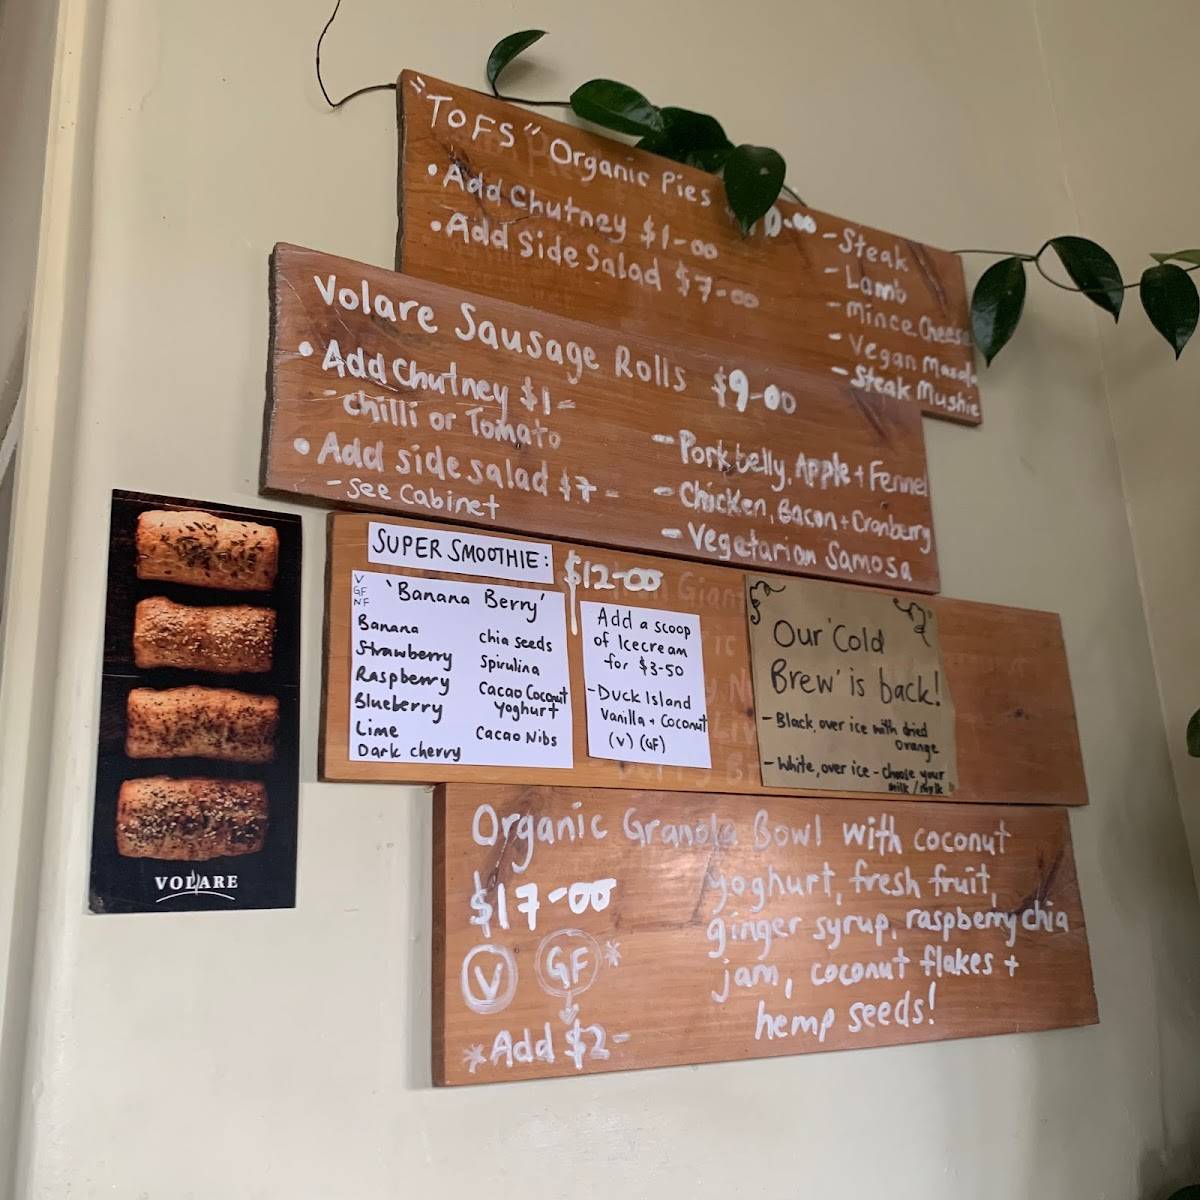 "TOFS" Organic Pies
• Add Chutney $1-00
• Add Side Salad $7-00
- Steak
- Lamb
- Mince Cheese
- Vegan
- Steak Mushie
Volare Sausage Rolls $9-00
• Add Chutney $1-
- Chilli or Tomato
• Add side salad $7-
- See Cabinet
- Pork belly, Apple + Fennel
- Chicken, Bacon + Cranberry
- Vegetarian Samosa
SUPER SMOOTHIE: $12-00
V
GF
NF
'Banana Berry'
Banana
Strawberry
Raspberry
Blueberry
Lime
Dark cherry
chia seeds
Spirulina
Cacao Coconut
Yoghurt
Cacao Nibs
Add a scoop
of Icecream
for $3-50
- Duck Island
Vanilla + Coconut
(V) (GF)
Our 'Cold
Brew' is back!
- Black, over ice with dried
orange
- White, over ice - choose your
milk/mylk
Organic Granola Bowl with coconut
yoghurt, fresh fruit,
ginger syrup, raspberry chia
jam, coconut flakes +
hemp seeds!
$17-00
V GF*
*Add $2-
VOLARE